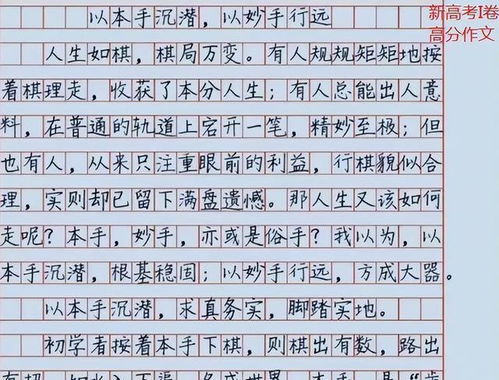 新高考I卷
高分作文
以本手沉潜，以妙手行远
人生如棋，棋局万变。有人规规矩矩地按
着棋理走，收获了本分人生；有人总能出人意
料，在普通的轨道上宕开一笔，精妙至极；但
也有人，从来只注重眼前的利益，行棋貌似合
理，实则却已留下满盘遗憾。那人生又该如何
走呢？本手，妙手，亦或是俗手？我以为，以
本手沉潜，根基稳固；以妙手行远，方成大器。
以本手沉潜，求真务实，脚踏实地。
初学者按着本手下棋，则棋出有数，路出